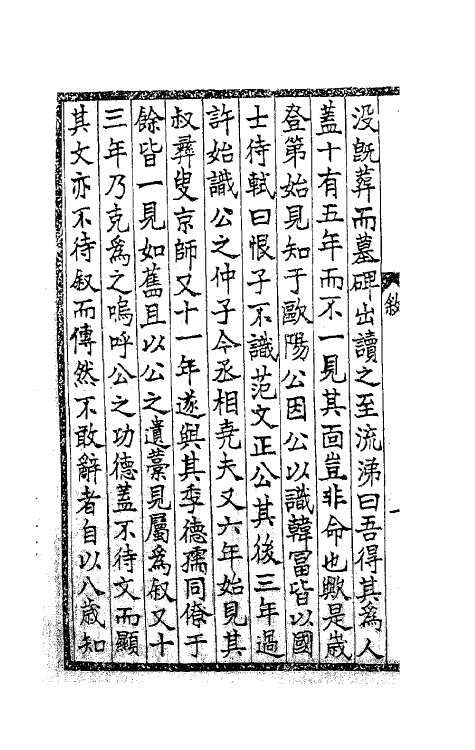 敘
没既葬而墓碑出讀之至流涕曰吾得其爲人
蓋十有五年而不一見其面豈非命也歟是歲
登第始見知于歐陽公因公以識韓冨皆以國
士待軾曰恨子不識范文正公其後三年過
許始識公之仲子今丞相堯夫又六年始見其
叔彝叟京師又十一年遂與其季德孺同僚于
徐皆一見如舊且以公之遺藁見屬爲叙又十
三年乃克爲之嗚呼公之功德蓋不待文而顯
其文亦不待叙而傳然不敢辭者自以八歲知